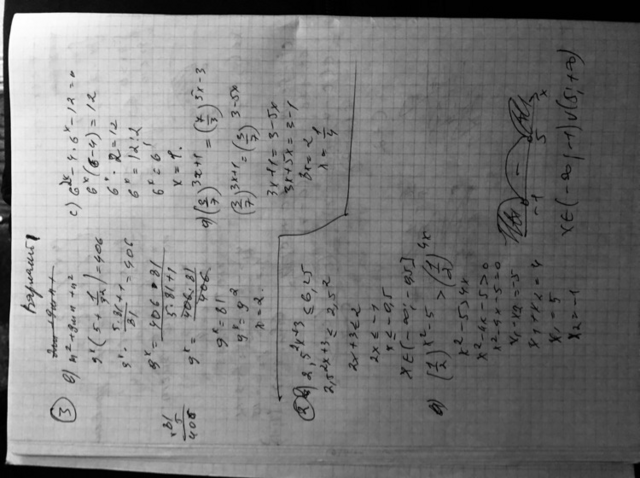 Вариант 1
③
в)
9ˣ(5 + 1/81) = 406
9ˣ · (5·81+1)/81 = 406
9ˣ = 406·81/(5·81+1)
9ˣ = 406·81/406
9ˣ = 81
9ˣ = 9²
x = 2
×81
5
405
с) 6²ˣ - 4·6ˣ - 12 = 0
6ˣ(6-4) = 12
6ˣ · 2 = 12
6ˣ = 12:2
6ˣ = 6¹
x = 1.
(3/7)³ˣ⁺¹ = (7/3)⁵ˣ⁻³
(3/7)³ˣ⁺¹ = (3/7)³⁻⁵ˣ
3x+1 = 3-5x
3x+5x = 3-1
8x = 2
x = 1/4
2,5²ˣ⁺³ ≤ 6,25
2,5²ˣ⁺³ ≤ 2,5²
2x+3 ≤ 2
2x ≤ -1
x ≤ -0,5
x∈(-∞; -0,5]
в) (1/2)^(x²-5) > (1/2)^(4x)
x²-5 > 4x
x²-4x-5 > 0
x²-4x-5=0
x₁·x₂ = -5
x₁+x₂ = 4
x₁ = 5
x₂ = -1
-1 5 x
x∈(-∞; -1)∪(5; +∞)